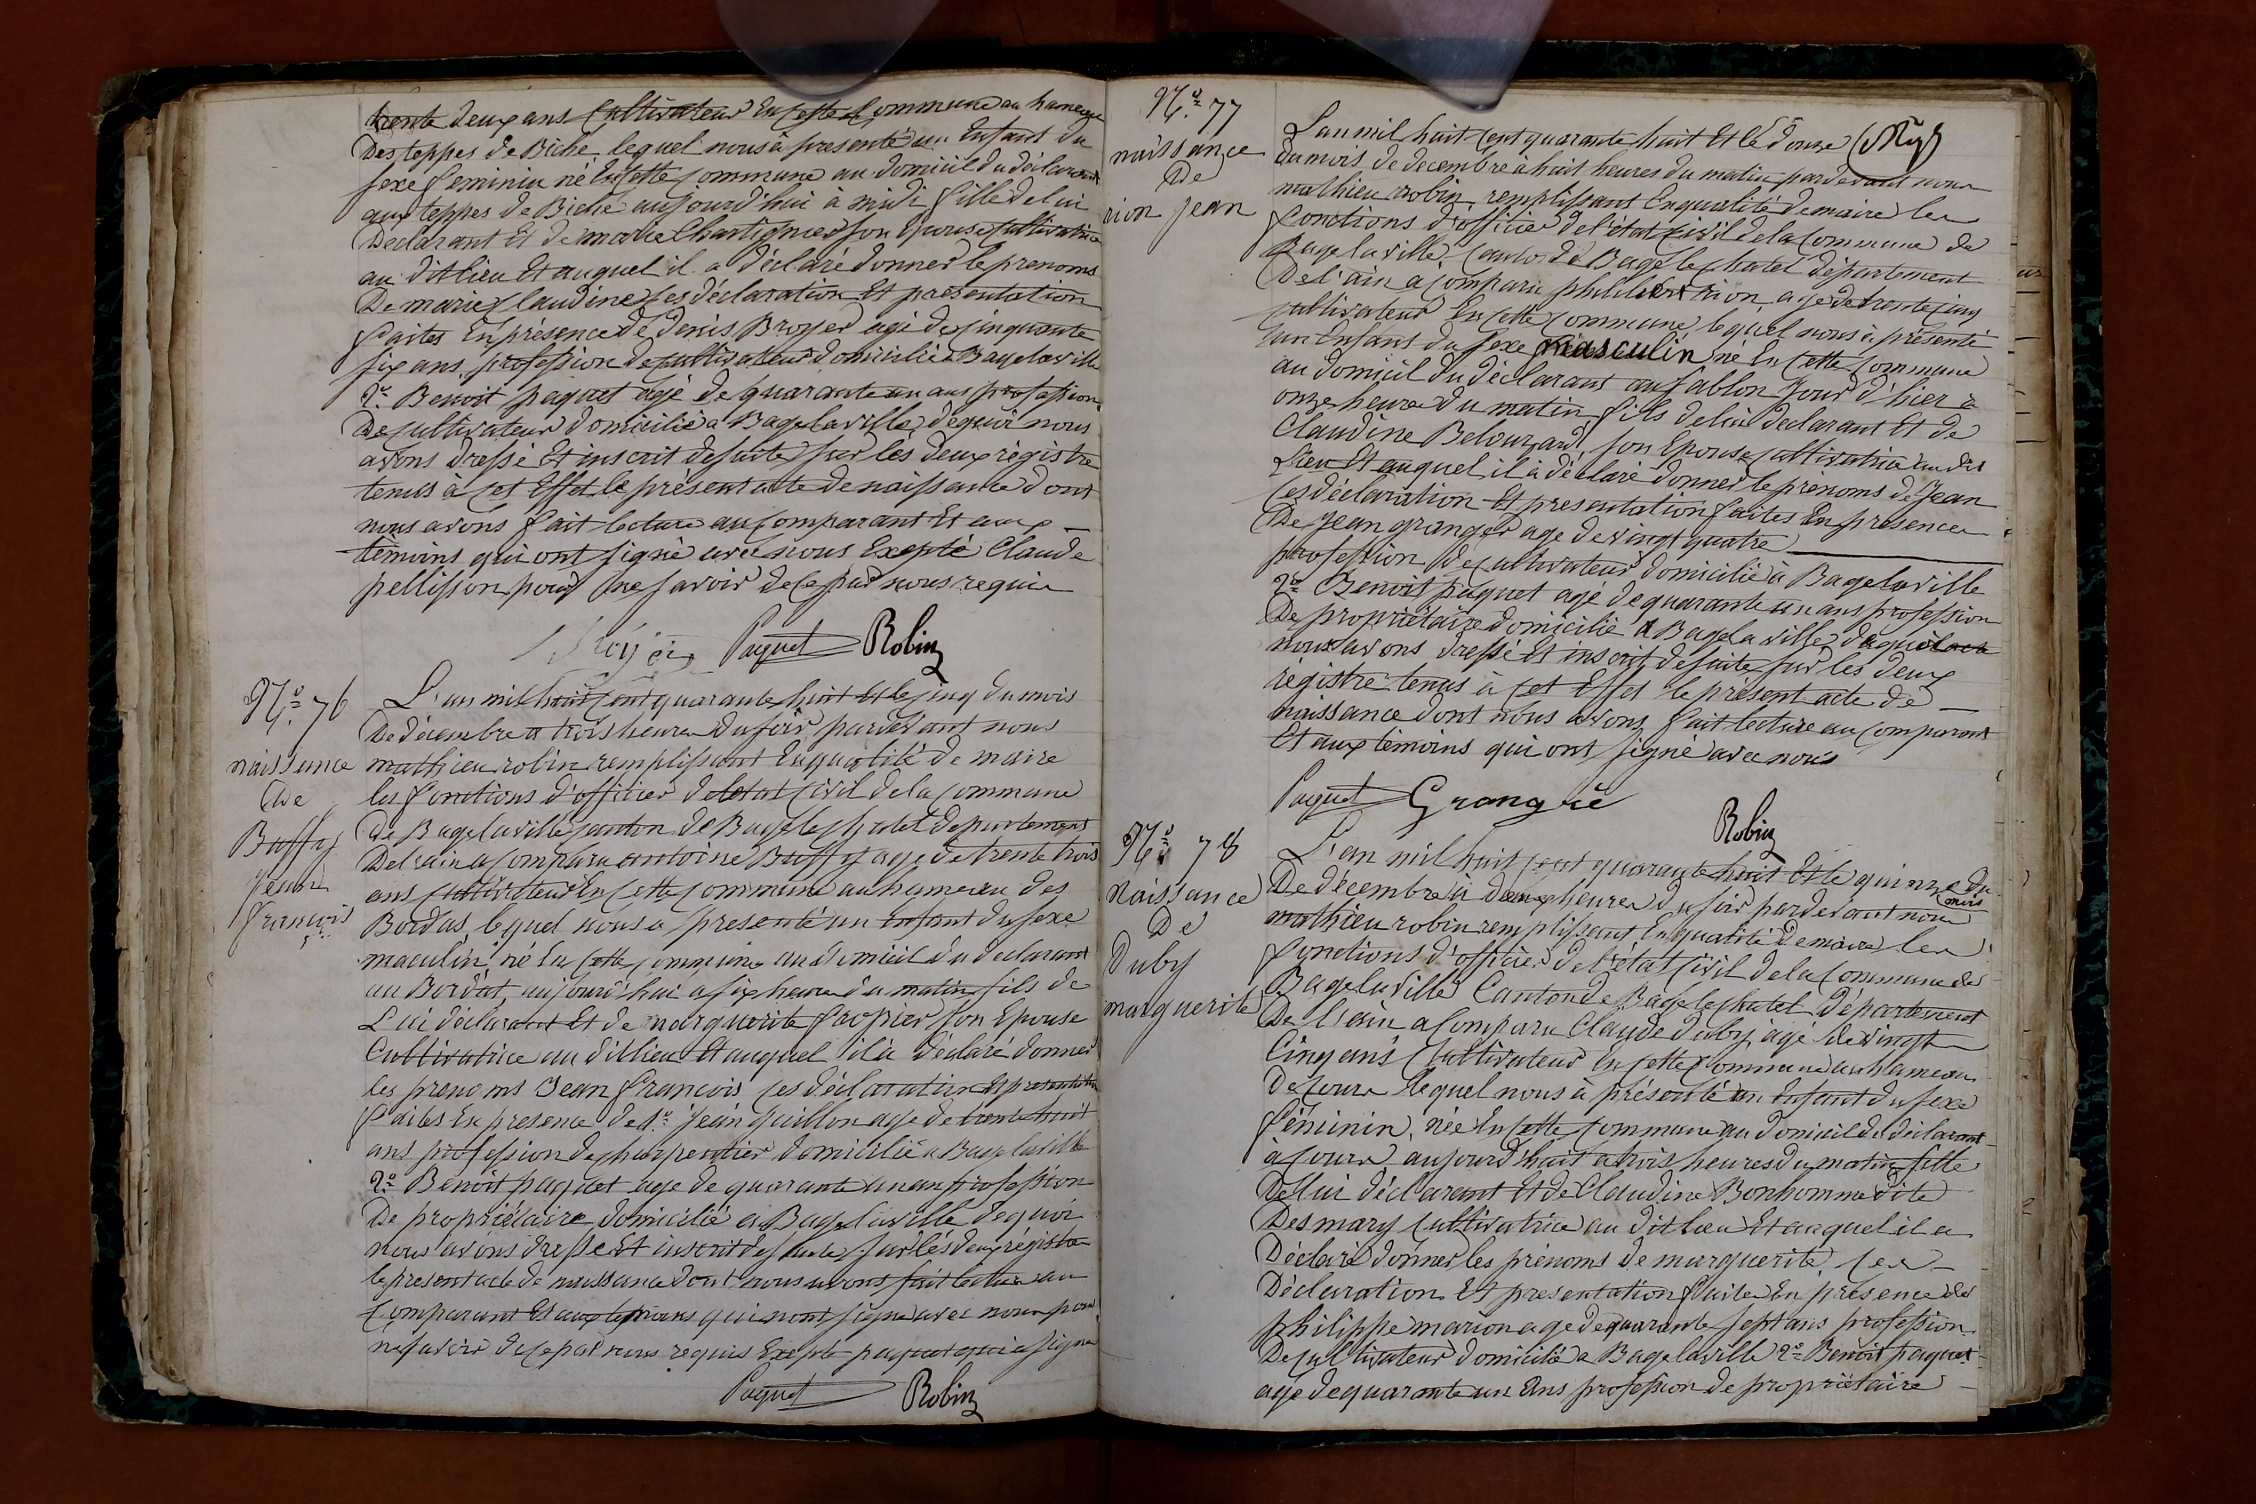 trente deux ans Cultivateur En cette Commune au hameau
Des teppes de Biche lequel nous à presenté un Enfant du
sexe feminin né En cette commune au domicil du déclarant
aux teppes de Biche aujourd'hui à midi fille de lui
Déclarant Et de marie Chartignier son Epouse Cultivatrice
au dit lieu Et auquel il a déclaré donner le prenoms
De marie Claudine ces déclaration Et présentation
faites En présence de denis Broyer agé de cinquante
six ans profession de cultivateur domicilié a Bagelaville
2o Benoit paquet agé de quarante un ans profession
De cultivateur domicilié à Bagelaville de quoi nous
avons dressé Et inscrit de suite sur les deux régistre
tenus à cet Effet le présent acte de naissance dont
nous avons fait lecture au comparant Et aux
témoins qui ont signé avec nous Exepté Claude
pellisson pour ne savoir de ce par nous requis
Broyer Paquet Robin
No. 76
naissance
De
Buffy
Jean
françois
L'an mil huit cent quarante huit Et le cinq du mois
De décembre a trois heures du soir pardevant nous
mathieu robin remplissant En qualité de maire
les fonctions d'officier de letat civil de la commune
De Bagelaville canton de Bagelechatel departement
De l'ain a comparu antoine Buffy agé de trente trois
ans cultivateur En cette commune au hameau des
Bordas, lequel nous a presenté un Enfant du sexe
maculin né En cette commune au domicil du declarant
au Bordat, aujourd'hui a six heure du matin fils de
Lui déclarant Et de marguerite son Epouse
Cultivatrice au dit lieu Et auquel il à déclaré donner
les prenoms Jean françois ces déclaration Et presentation
faites En presence de 1o. Jean guillon agé de trente huit
ans profession de charpentier domicilié a Bagelaville
2o Benoit paquet agé de quarante un an profession
De propriétaire domicilié a Bagelaville de quoi
nous avons dressé Et inscrit de suite sur les deux registre
le present acte de naissance dont nous avons fait lecture au
comparant Et aux temoins qui nont signé avec nous pour
ne savoir de ce par nous requis Exepté paquet qui a signé
Paquet Robin
No. 77
naissance
De
rion jean
L'an mil huit cent quarante huit Et le douze
du mois de decembre à huit heures du matin pardevant nous
mathieu robin remplissant En qualité de maire les
fonctions d'officier de l'état civil de la commune de
Bagelaville canton de Bagé le chatel département
De l'ain a comparu philibert rion agé de trente cinq
cultivateur En cette commune lequel nous à présenté
un Enfant du sexe masculin né En cette commune
au domicil du déclarant au sablon jour d'hier a
onze heure du matin fils de lui declarant Et de
Claudine Belouzard son Epouse cultivatrice au dit
Lieu Et auquel il à déclaré donner le prenoms de Jean
ces déclaration Et presentation faites En présence
De jean granger age de vingt quatre
profession de cultivateur domicilié à Bagelaville
2o Benoit paquet agé de quarante un ans profession
De propriétaire domicilié a Bagelaville
nous avons dressé Et inscrit de suite sur les deux
régistre tenus à cet Effet le présent acte de
naissance dont nous avons fait lecture au comparant
Et aux témoins qui ont signé avec nous
Paquet Grangré
Robin
No 78
naissance
De
Duby
marguerite
L'an mil huit cent quarante huit Et le quinze du
mois
De décembre à deux heures du soir pardevant nous
mathieu robin remplissant En qualité de maire les
fonctions d'officier de l'état civil de la Commune de
Bagelaville Canton de Bagelechatel département
De l'ain a comparu Claude duby agé de vingt
Cinq ans Cultivateur En cette commune au hameau
De cours lequel nous à présenté un Enfant du sexe
féminin, née En cette commune au domicil du déclarant
à cours aujourd'huit a trois heures du matin fille
De lui déclarant Et de Claudine Bonhomme dite
Desmary cultivatrice au dit lieu Et auquel il a
Déclaré donner les prénoms de marguerite ces
Déclaration Et presentation faites En présence de
philippe marion age de quarante sept ans profession
De cultivateur domicilié a Bagelaville 2o Benoit paquet
age de quarante un Ans profession de propriétaire